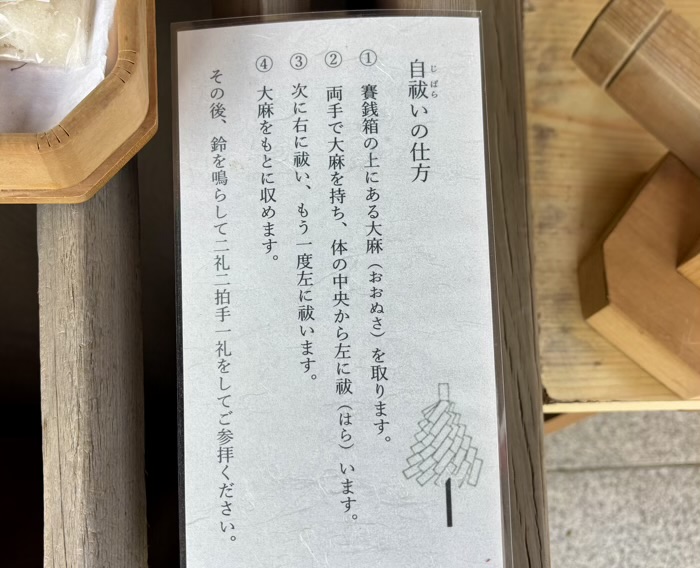 自祓いの仕方
じばら
① 賽銭箱の上にある大麻（おおぬさ）を取ります。
② 両手で大麻を持ち、体の中央から左に祓（はら）います。
③ 次に右に祓い、もう一度左に祓います。
④ 大麻をもとに収めます。
その後、鈴を鳴らして二礼二拍手一礼をしてご参拝ください。